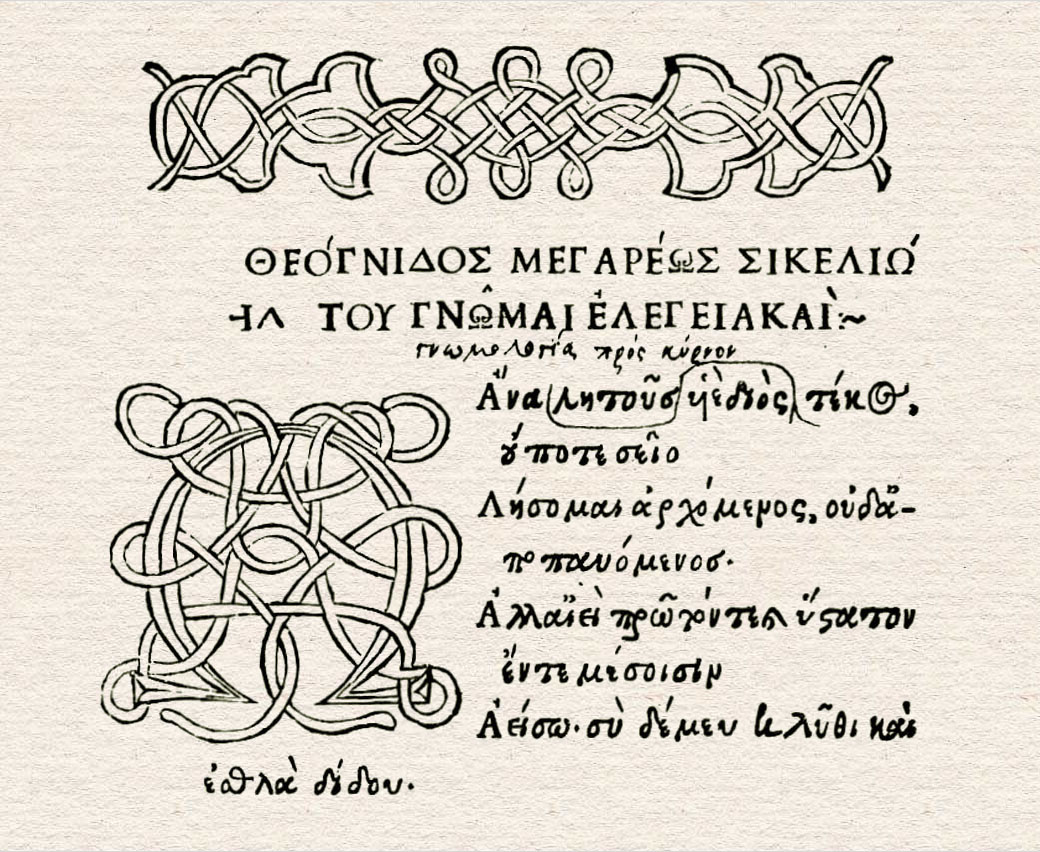 ΘΕΌΓΝΙΔΟΣ ΜΕΓΑΡΈΩΣ ΣΙΚΕΛΙΩ
ΤΟΥ ΓΝΩ͂ΜΑΙ ἘΛΕΓΕΙΑΚΑῚ:~
γνωμολογία πρὸς κύρνον
Ἄνα λητοῦσ ὑιὲ διὸς, τέκος,
ὄυποτε σεῖο
Λήσομαι ἀρχόμενος, οὐδ' ἀ-
ποπαυόμενοσ.
Ἀλλ' αἰεὶ πρῶτόν τε καὶ ὕστατον
ἔν τε μέσοισιν
Ἀείσω. σὺ δέ μευ κλῦθι καὶ
ἐσθλὰ δίδου.